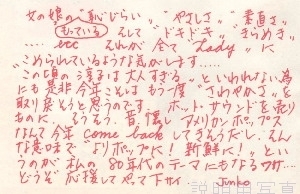 女の娘の"恥じらい" "やさしさ" "素直さ"
もっている そして "ドキドキ" "きらめき"
…… etc それが全て "Lady" に
こめられているような気がします……
"この頃の淳子は大人すぎる" といわれない為
にも是非今年こそはもう1度 "さわやかさ" を
取り戻そうと思うのです。ホット・サウンドを売り
ものに、そうそう、昔懐しアメリカンポップス
なんて今年 come back してきそうだし、そん
な意味で "よりポップに!新鮮に!" とい
うのが私の80年代のテーマにもなるワサ…
どうぞ応援してやって下サイ Junko
説明用写真